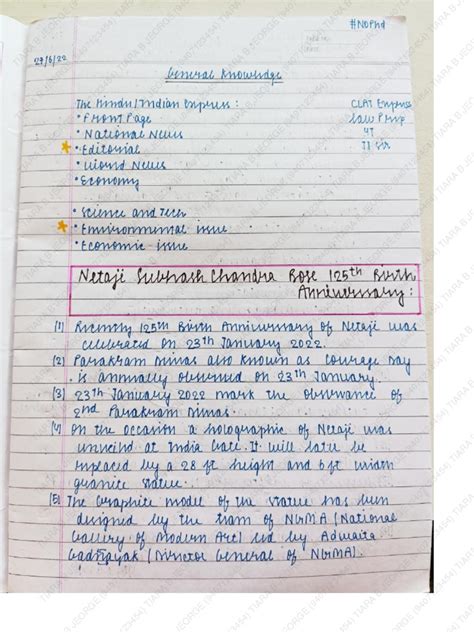 #NOPhd
29/6/22
General Knowledge
The Hindu/Indian Express :
CLAT Express
• Front Page
Law Prep
• National News
YT
• Editorial
• World News
• Economy
• Science and Tech
• Environmental issue
• Economic issue
Netaji Subhash Chandra Bose 125th Birth
Anniversary :
(1) Recently 125th Birth Anniversary of Netaji was
celebrated on 23th January 2022.
(2) Parakram Diwas also known as courage Day
is annually observed on 23th January.
(3) 23th January 2022 mark the observance of
2nd Parakram Diwas.
(4) On the occasion a holographic of Netaji was
unveiled at India Gate. It will later be
replaced by a 28 ft height and 6 ft width
granite statue.
(5) The Graphite model of the statue has been
designed by the team of NGMA (National
Gallery of Modern Art) led by Adwaita
Gadnayak (Director General of NGMA).